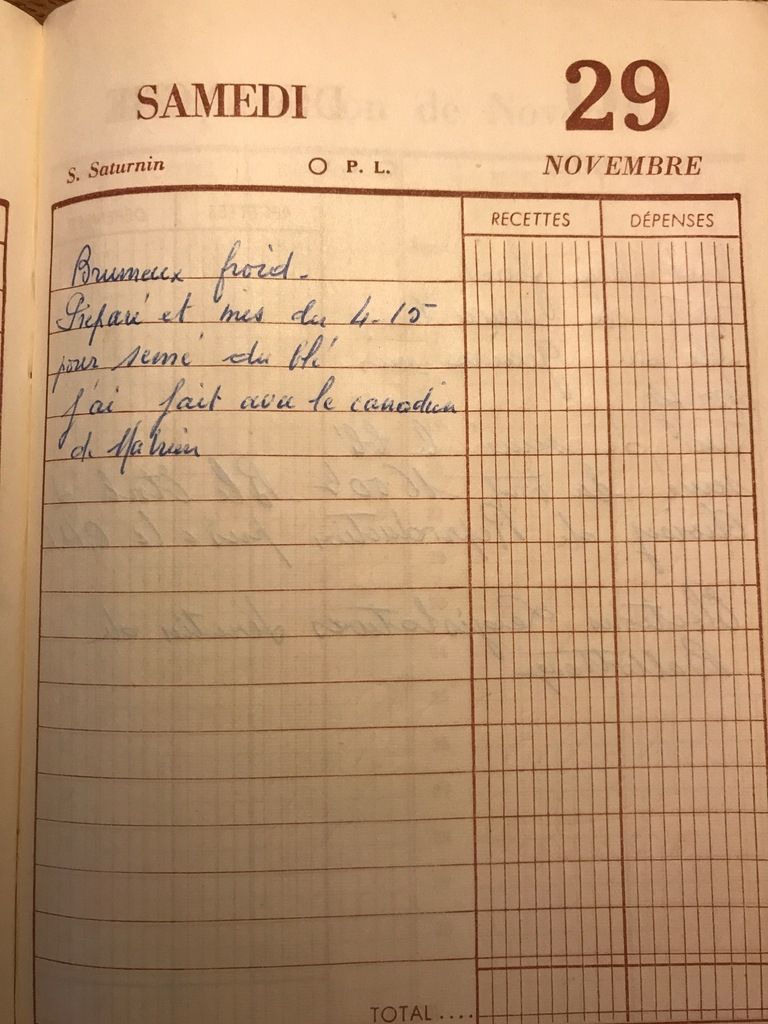 SAMEDI 29
S. Saturnin O P. L. NOVEMBRE
RECETTES DÉPENSES
Brumeux froid.
Préparé et mis du 4-15
pour semé du blé
j'ai fait avec le canadien
de
TOTAL ....